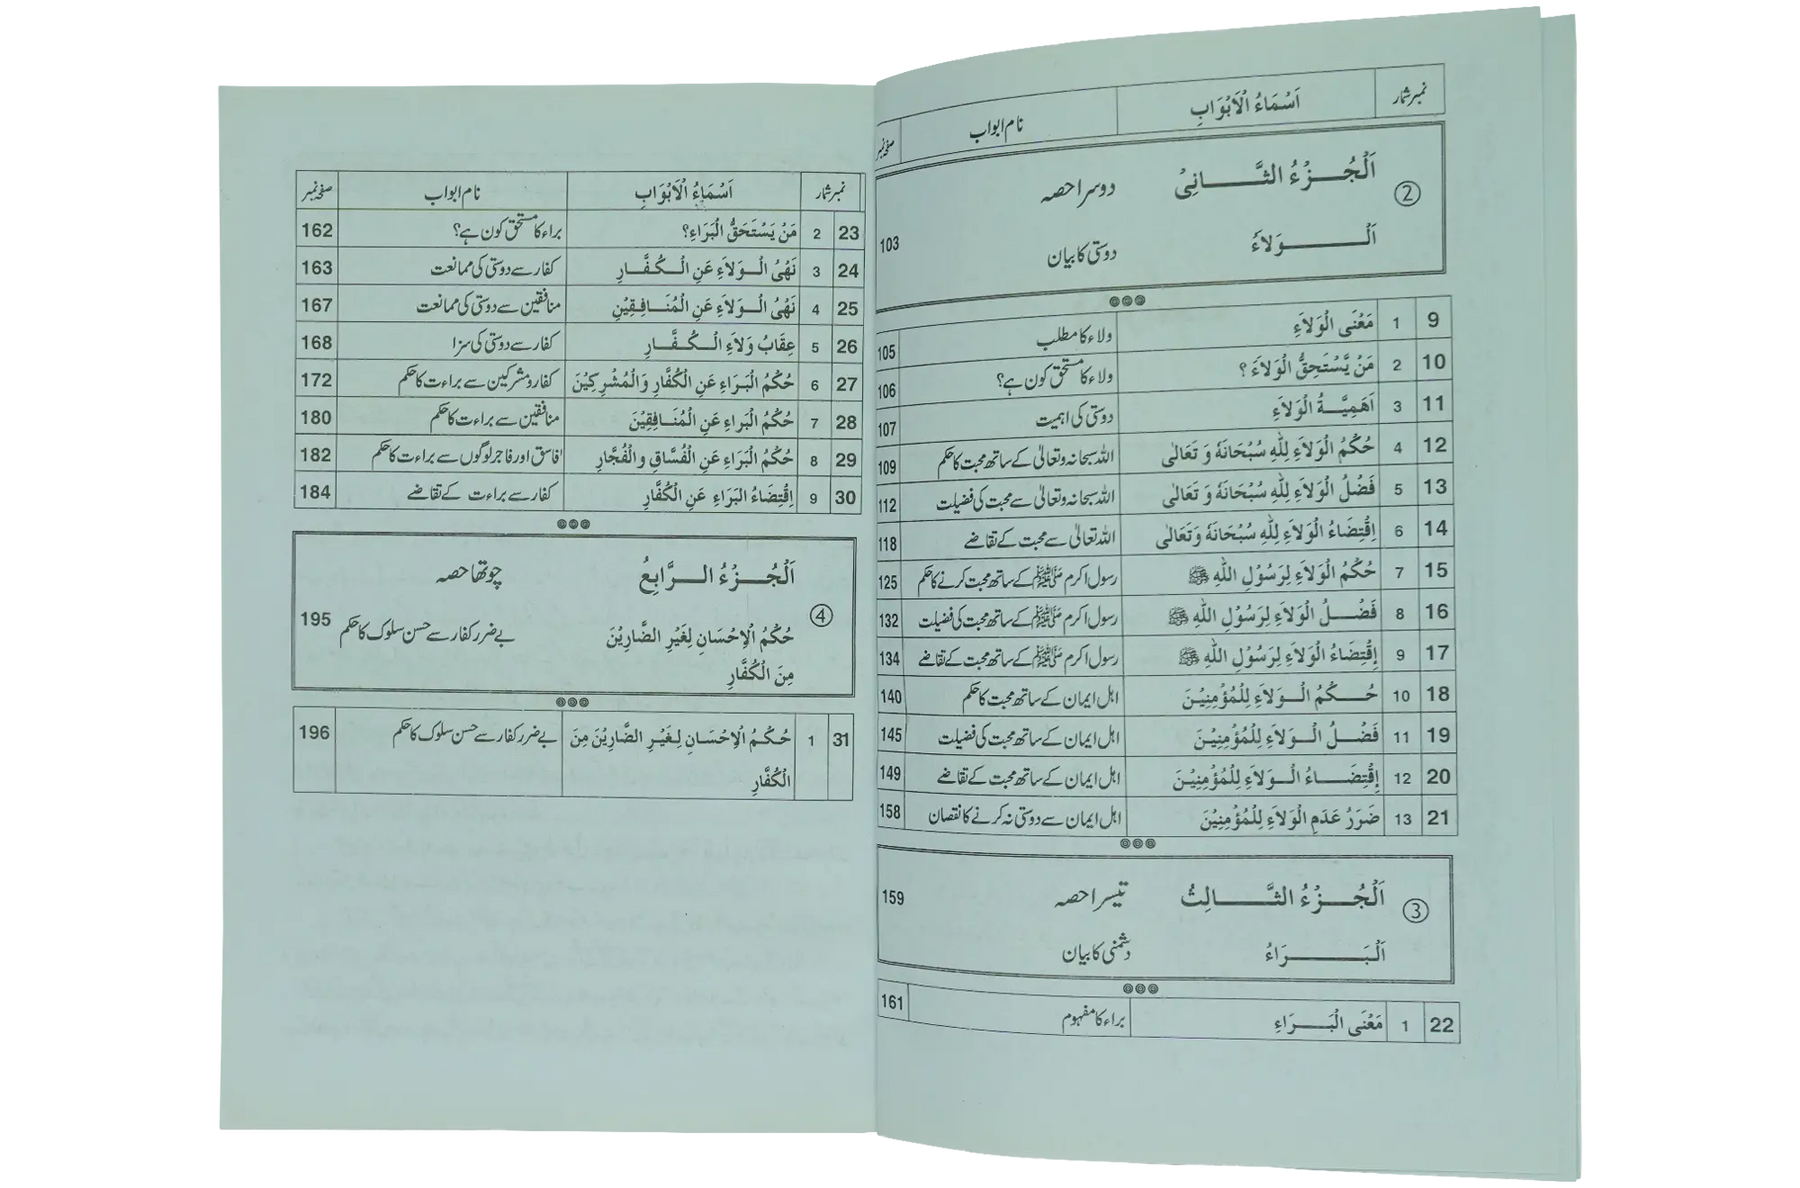 نمبر شمار اَسْمَاءُ الْاَبْوَابِ نام ابواب صفحہ نمبر
② اَلْجُزْءُ الثَّانِیْ دوسرا حصہ
اَلْوَلَاءُ دوستی کا بیان 103
9 1 مَعْنَی الْوَلَاءِ ولاء کا مطلب 105
10 2 مَنْ یَّسْتَحِقُّ الْوَلَاءَ ؟ ولاء کا مستحق کون ہے؟ 106
11 3 اَهَمِیَّةُ الْوَلَاءِ دوستی کی اہمیت 107
12 4 حُکْمُ الْوَلَاءِ لِلّٰهِ سُبْحَانَهٗ وَ تَعَالٰی اللہ سبحانہ وتعالیٰ کے ساتھ محبت کا حکم 109
13 5 فَضْلُ الْوَلَاءِ لِلّٰهِ سُبْحَانَهٗ وَ تَعَالٰی اللہ سبحانہ وتعالیٰ سے محبت کی فضیلت 112
14 6 اِقْتِضَاءُ الْوَلَاءِ لِلّٰهِ سُبْحَانَهٗ وَتَعَالٰی اللہ تعالیٰ سے محبت کے تقاضے 118
15 7 حُکْمُ الْوَلَاءِ لِرَسُوْلِ اللّٰهِ ﷺ رسول اکرم ﷺ کے ساتھ محبت کرنے کا حکم 125
16 8 فَضْلُ الْوَلَاءِ لِرَسُوْلِ اللّٰهِ ﷺ رسول اکرم ﷺ کے ساتھ محبت کی فضیلت 132
17 9 اِقْتِضَاءُ الْوَلَاءِ لِرَسُوْلِ اللّٰهِ ﷺ رسول اکرم ﷺ کے ساتھ محبت کے تقاضے 134
18 10 حُکْمُ الْوَلَاءِ لِلْمُؤْمِنِیْنَ اہل ایمان کے ساتھ محبت کا حکم 140
19 11 فَضْلُ الْوَلَاءِ لِلْمُؤْمِنِیْنَ اہل ایمان کے ساتھ محبت کی فضیلت 145
20 12 اِقْتِضَاءُ الْوَلَاءِ لِلْمُؤْمِنِیْنَ اہل ایمان کے ساتھ محبت کے تقاضے 149
21 13 ضَرَرُ عَدَمِ الْوَلَاءِ لِلْمُؤْمِنِیْنَ اہل ایمان سے دوستی نہ کرنے کا نقصان 158
③ اَلْجُزْءُ الثَّالِثُ تیسرا حصہ 159
اَلْبَرَاءُ دشمنی کا بیان
22 1 مَعْنَی الْبَرَاءِ براء کا مفہوم 161
نمبر شمار اَسْمَاءُ الْاَبْوَابِ نام ابواب صفحہ نمبر
23 2 مَنْ یَسْتَحِقُّ الْبَرَاءِ؟ براء کا مستحق کون ہے؟ 162
24 3 نَهْیُ الْوَلَاءِ عَنِ الْکُفَّارِ کفار سے دوستی کی ممانعت 163
25 4 نَهْیُ الْوَلَاءِ عَنِ الْمُنَافِقِیْنِ منافقین سے دوستی کی ممانعت 167
26 5 عِقَابُ وَلَاءِ الْکُفَّارِ کفار سے دوستی کی سزا 168
27 6 حُکْمُ الْبَرَاءِ عَنِ الْکُفَّارِ وَالْمُشْرِکِیْنَ کفار و مشرکین سے براءت کا حکم 172
28 7 حُکْمُ الْبَراءِ عَنِ الْمُنَافِقِیْنَ منافقین سے براءت کا حکم 180
29 8 حُکْمُ الْبَرَاءِ عَنِ الْفُسَّاقِ والْفُجَّارِ فاسق اور فاجر لوگوں سے براءت کا حکم 182
30 9 اِقْتِضَاءُ الْبَرَاءِ عَنِ الْکُفَّارِ کفار سے براءت کے تقاضے 184
④ اَلْجُزْءُ الرَّابِعُ چوتھا حصہ
حُکْمُ الْاِحْسَانِ لِغَیْرِ الضَّارِیْنَ بے ضرر کفار سے حسن سلوک کا حکم 195
مِنَ الْکُفَّارِ
31 1 حُکْمُ الْاِحْسَانِ لِغَیْرِ الضَّارِیْنَ مِنَ بے ضرر کفار سے حسن سلوک کا حکم 196
الْکُفَّارِ